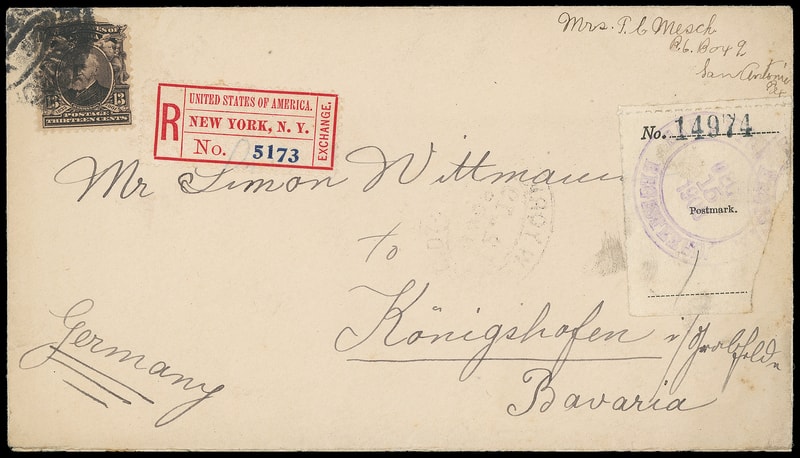 Mrs. P. C Mesch
P.O. Box 9
San Antonio
Tex
13 13
POSTAGE
THIRTEEN CENTS
R
UNITED STATES OF AMERICA.
NEW YORK, N. Y.
No. 5173
EXCHANGE.
No. 14974
Postmark.
REGISTERED
Mr Simon Wittmann
to
Königshofen i/Grabfelde
Bavaria
Germany